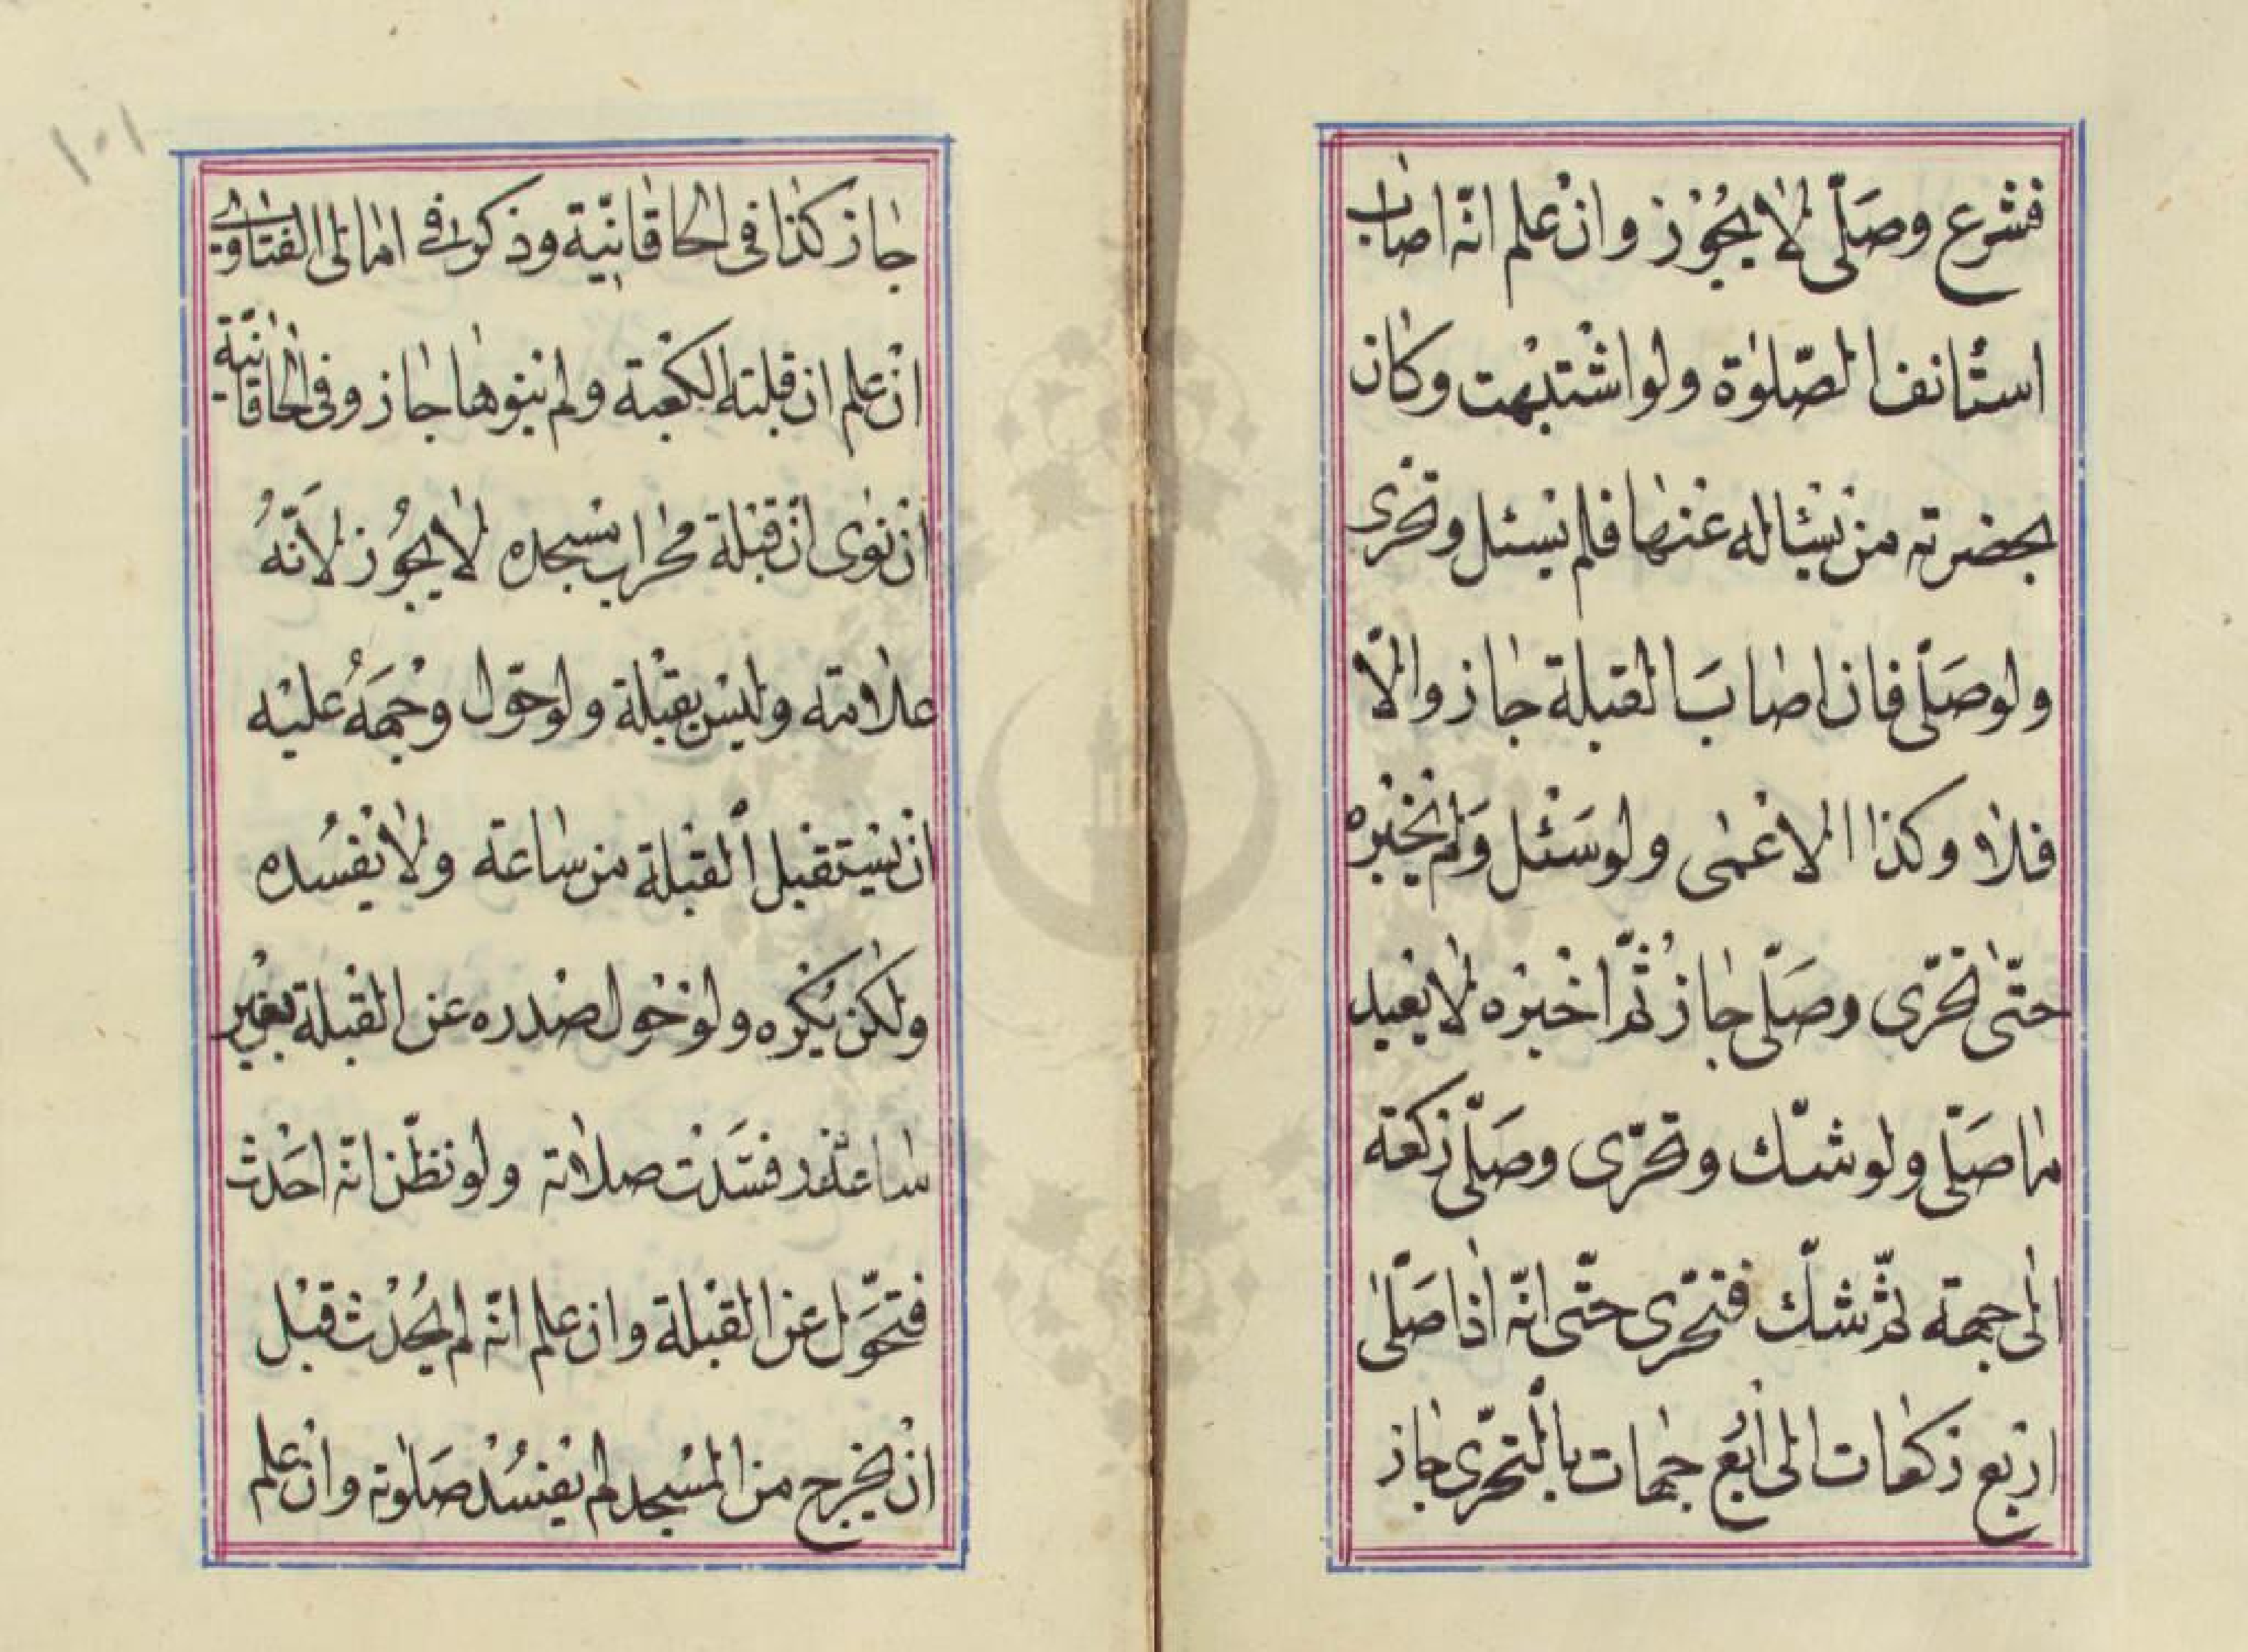 فشرع وصلّى لا يجُوز وان علم انّه اصاب
استانف الصّلوٰة ولو اشتبهت وكان
بحضرته من يسٔاله عنها فلم يسئل وتحرى
ولو صَلّى فان اصابَ القبلة جاز والّا
فلا وكذا الاعمى ولو سَئل وَلم يخبره
حتّى تحرّى وصَلّى جاز ثُمّ اخبره لا يعيد
ما صَلّى ولو شك وتحرّى وصَلّى ركعة
الى جهة ثمّ شكّ فتحرّى حتّى انّه اذا صَلّى
اربع ركعات الى اربع جهات بالتحرّى جاز
جاز كذا فى الخاقانيّة وذكر فى امالى الفتاوى
ان علم ان قبلته الكعبة ولم ينوها جاز وفى الخاقانيّة
ان نوى انّ قبلة محراب مسجده لا يجُوز لانّهُ
علامته وليس بقبلة ولو حوّل وجهَهُ عليه
ان يستقبل القبلة من ساعته ولا يفسُده
ولكن يكره ولو حوّل صدره عن القبلة بغير
عذر فسَدت صلاته ولو ظنّ انّه احَدث
فتحَوّل عن القبلة وان علم انّه لم يُحدث قبل
ان يخرج من المسجد لم يفسُد صَلوته وان علم
١٠١